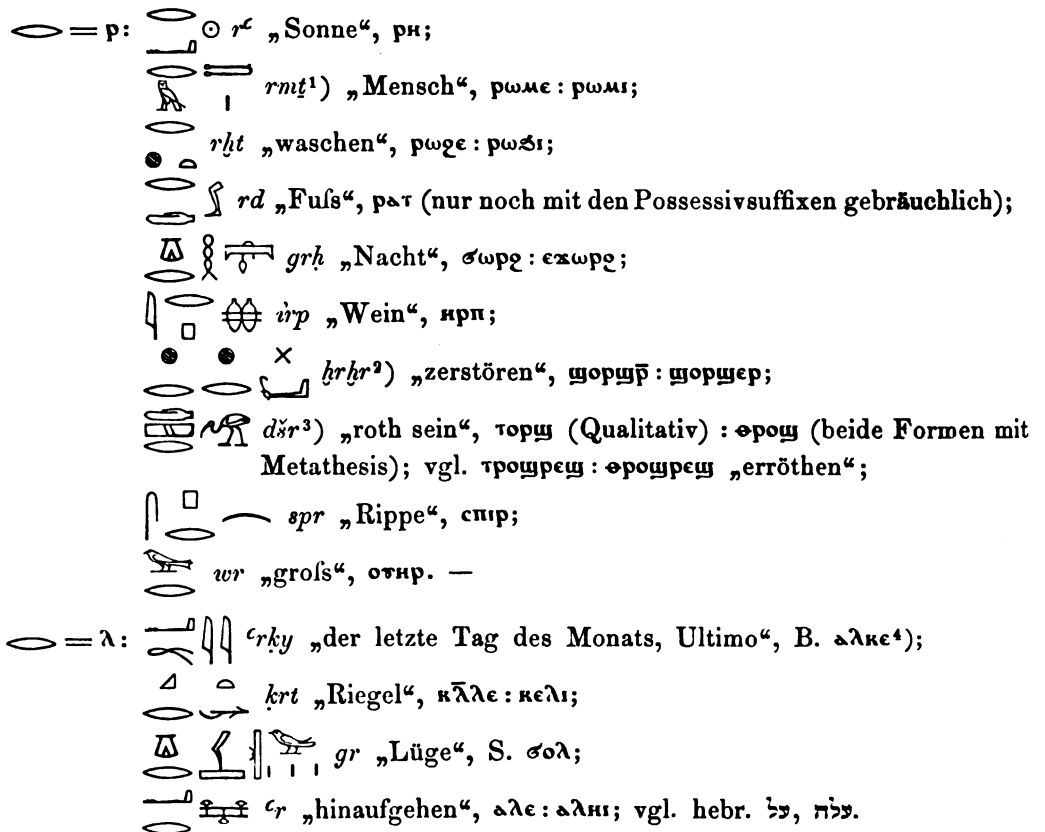 𓂋 = ⲣ: 𓂋𓂝𓇳 rꜥ „Sonne“, ⲣⲏ;
𓂋𓅓𓍿𓏤 rmṯ¹) „Mensch“, ⲣⲱⲙⲉ : ⲣⲱⲙⲓ;
𓂋𓐍𓏏 rḫt „waschen“, ⲣⲱϩⲉ : ⲣⲱϧⲓ;
𓂋𓂧𓂾 rd „Fuſs“, ⲣⲁⲧ (nur noch mit den Possessivsuffixen gebräuchlich);
𓎼𓂋𓎛𓇰 grḥ „Nacht“, ϭⲱⲣϩ : ⲉϫⲱⲣϩ;
𓇋𓂋𓊪𓏊 i̓rp „Wein“, ⲏⲣⲡ;
𓐍𓂋𓐍𓂋𓏴𓂡 ḫrḫr²) „zerstören“, ϣⲟⲣϣⲣ̄ : ϣⲟⲣϣⲉⲣ;
𓂧𓈙𓂋𓅟 dšr³) „roth sein“, ⲧⲟⲣϣ (Qualitativ) : ⲑⲣⲟϣ (beide Formen mit
Metathesis); vgl. ⲧⲣⲟϣⲣⲉϣ : ⲑⲣⲟϣⲣⲉϣ „erröthen“;
𓋴𓊪𓂋𓄹 spr „Rippe“, ⲥⲡⲓⲣ;
𓅨𓂋 wr „groſs“, ⲟⲩⲏⲣ. —
𓂋 = ⲗ: 𓂝𓂋𓍿𓇋𓇋 ꜥrḳy „der letzte Tag des Monats, Ultimo“, B. ⲁⲗⲕⲉ⁴);
𓈎𓂋𓏏𓊃 ḳrt „Riegel“, ⲕⲗ̄ⲗⲉ : ⲕⲉⲗⲓ;
𓎼𓂋𓅪𓏥 gr „Lüge“, S. ϭⲟⲗ;
𓂝𓂋 ꜥr „hinaufgehen“, ⲁⲗⲉ : ⲁⲗⲏⲓ; vgl. hebr. על, עלה.